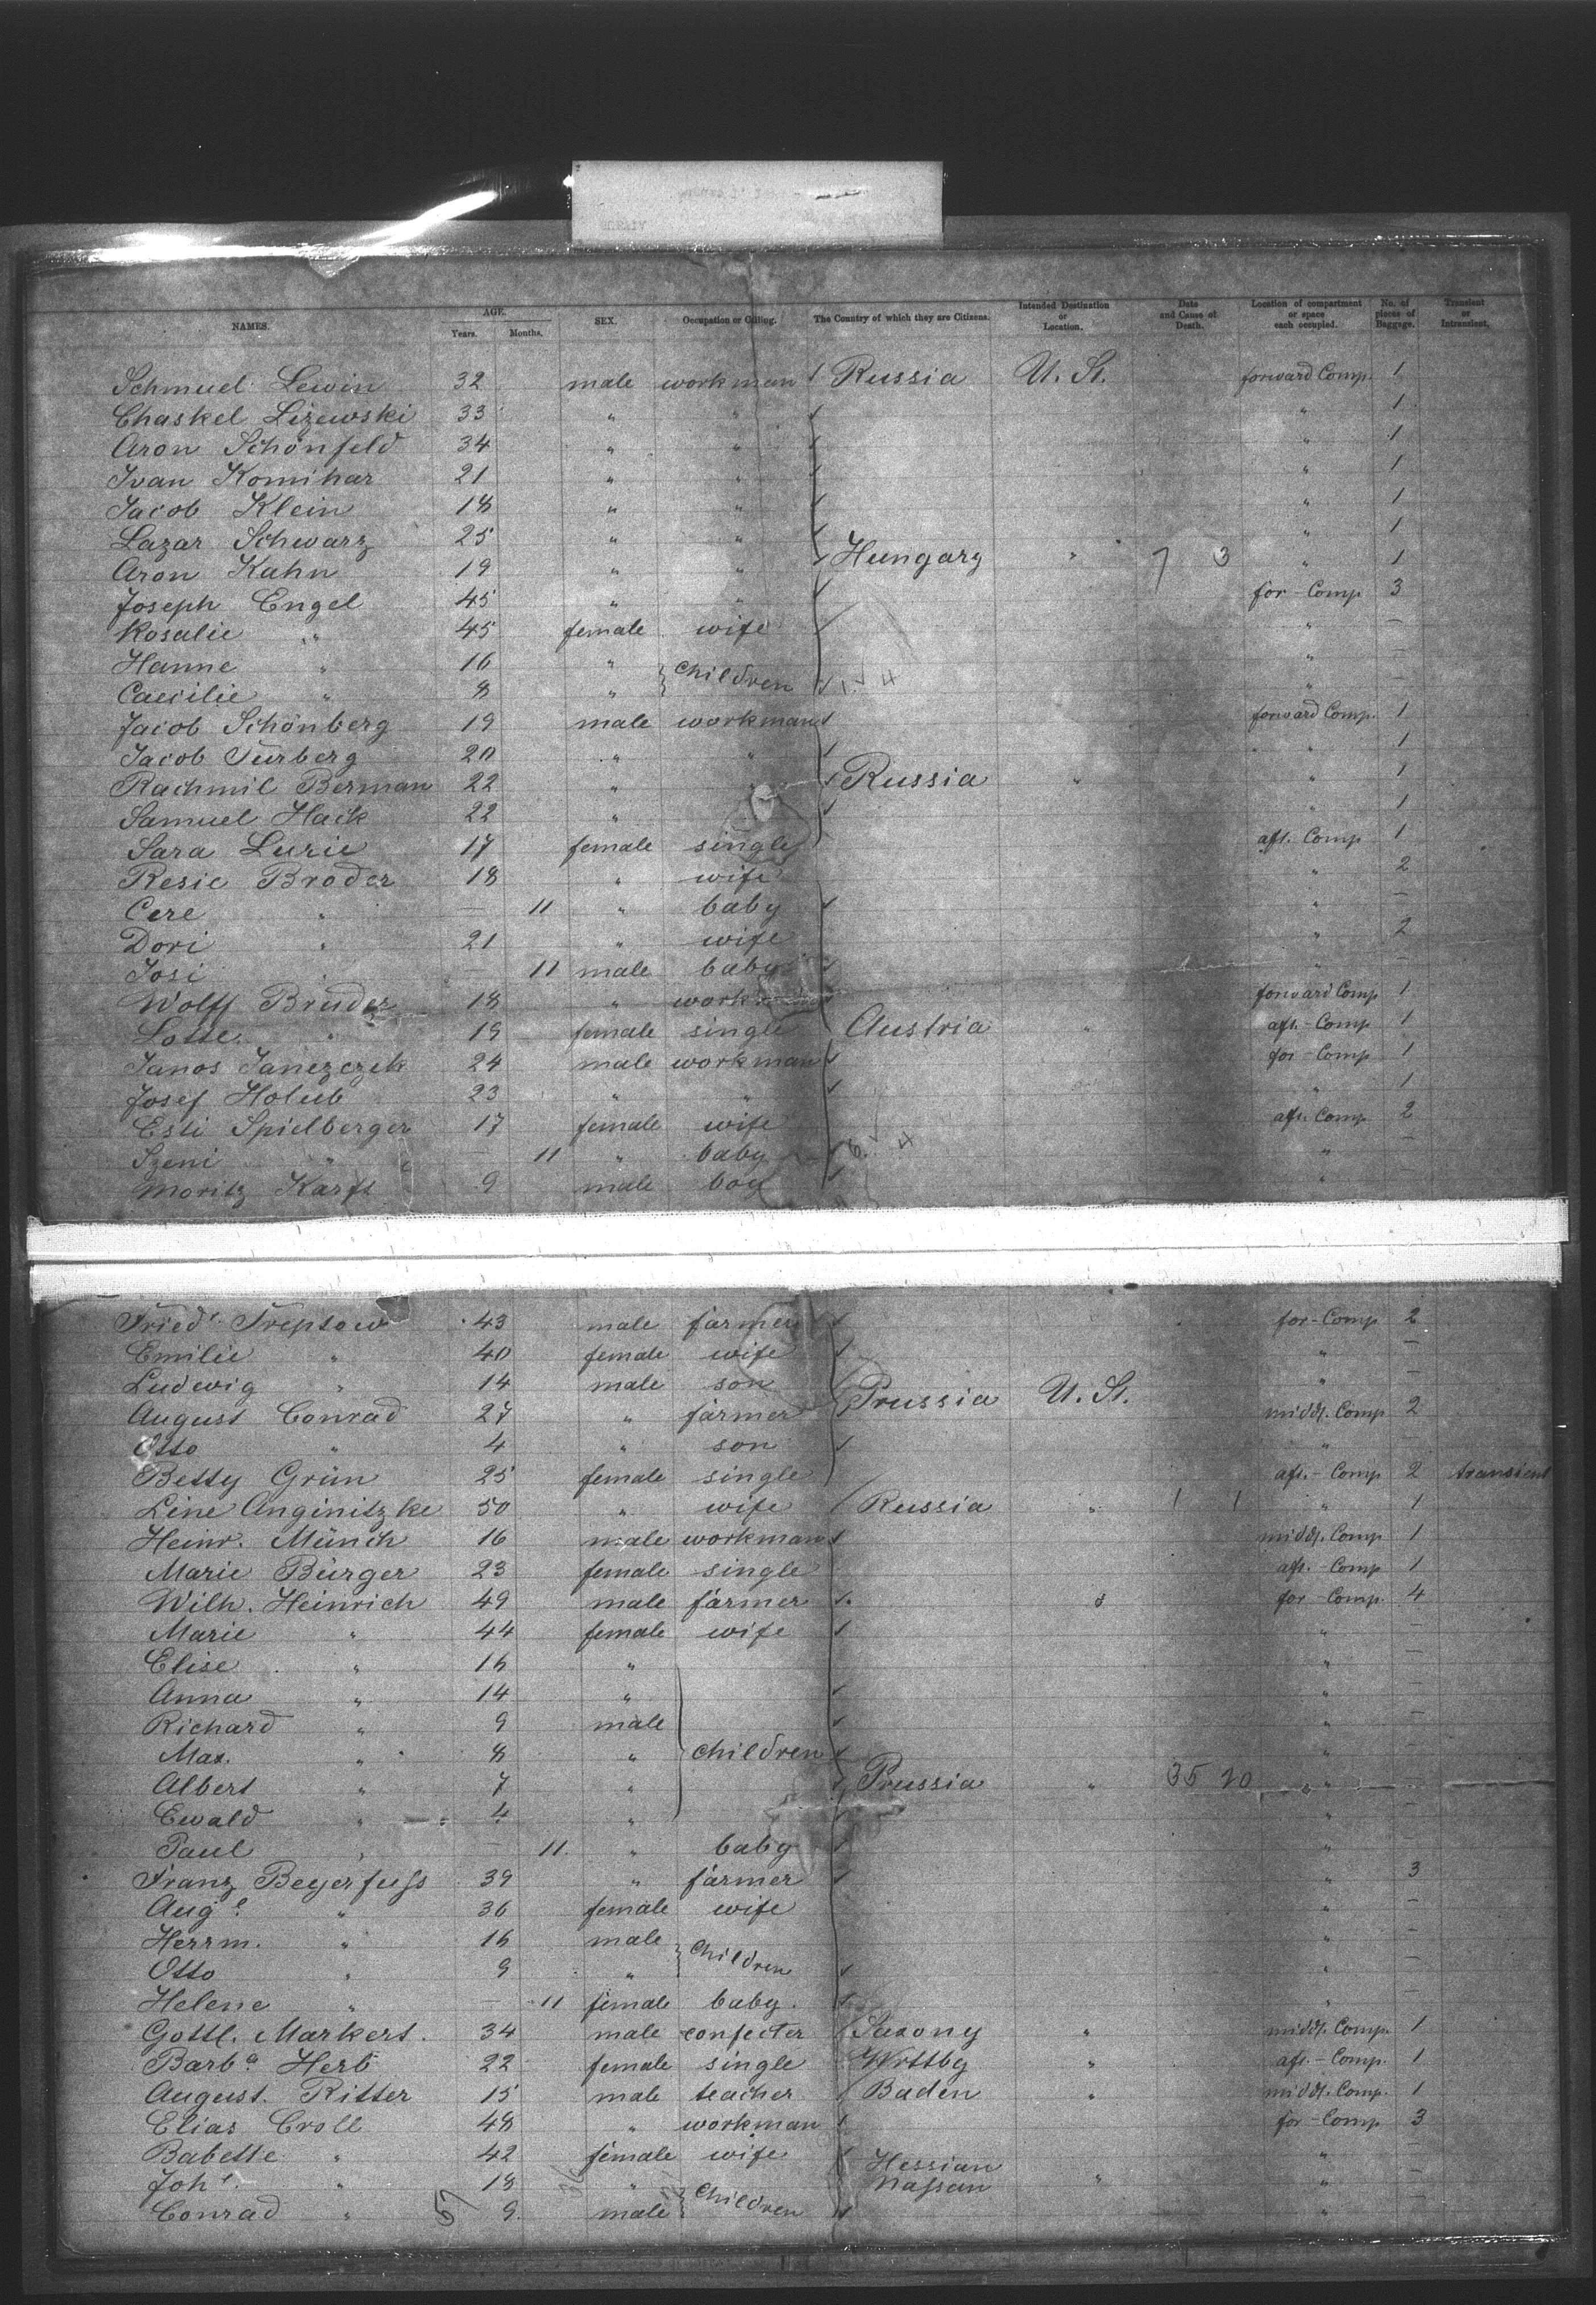 NAMES. AGE. Years. Months. SEX. Occupation or Calling. The Country of which they are Citizens. Intended Destination or Location. Date and Cause of Death. Location of compartment or space each occupied. No. of pieces of Baggage. Transient or Intransient.
Schmuel Lewin 32 male workman Russia U. St. forward Comp. 1
Chaskel Lizewski 33 " " " 1
Aron Schönfeld 34 " " " 1
Ivan Komihar 21 " " " 1
Jacob Klein 18 " " " 1
Lazar Schwarz 25 " " " 1
Aron Kahn 19 " " Hungary " 7 3 " 1
Joseph Engel 45 " " for-Comp 3
Rosalie " 45 female wife " —
Hanne " 16 " children " —
Caecilie " 8 " 4 " —
Jacob Schönberg 19 male workman forward Comp. 1
Jacob Turberg 20 " " " 1
Rachmil Berman 22 " " Russia " " 1
Samuel Hack 22 " " 1
Sara Lurie 17 female single aft. Comp 1
Resie Broder 18 " wife " 2
Cere " — 11 " baby " —
Dori " 21 " wife " 2
Josi " — 11 male baby " —
Wolff Bruder 18 " workman forward Comp 1
Lotte " 19 female single Austria " aft.-Comp 1
Janos Janezczek 24 male workman for-Comp 1
Josef Holub 23 " " " 1
Esti Spielberger 17 female wife aft. Comp 2
Szeni " — 11 " baby 4 " —
Moritz Karfs 9 male boy "
Friedr. Treptow 43 male farmer for-Comp 2
Emilie " 40 female wife " —
Ludewig " 14 male son " —
August Conrad 27 " farmer Prussia U. St. middl. Comp 2
Otto " 4 " son " —
Betty Grün 25 female single aft.-Comp 2 transient
Line Anginitzke 50 " wife Russia " 1 1 " 1
Heinr. Münch 16 male workman middl. Comp 1
Marie Bürger 23 female single aft.-Comp 1
Wilh. Heinrich 49 male farmer for-Comp. 4
Marie " 44 female wife " —
Elise " 16 " " —
Anna " 14 " " —
Richard " 9 male " —
Max. " 8 " children " —
Albert " 7 " Prussia " 35 20 " —
Ewald " 4 " " —
Paul " — 11 " baby " —
Franz Beyerfuss 39 " farmer " 3
Auge. " 36 female wife " —
Herrm. " 16 male children " —
Otto " 9 " " —
Helene " — 11 female baby " —
Gottl. Markert. 34 male confecter Saxony " middl. Comp. 1
Barba. Herb 22 female single Wrttbg " aft.-Comp. 1
August. Ritter 15 male teacher Baden " middl. Comp. 1
Elias Croll 48 " workman for-Comp 3
Babette " 42 female wife Hessian " —
Joht. " 18 " children Nassau " " —
Conrad " 57 9 male " —